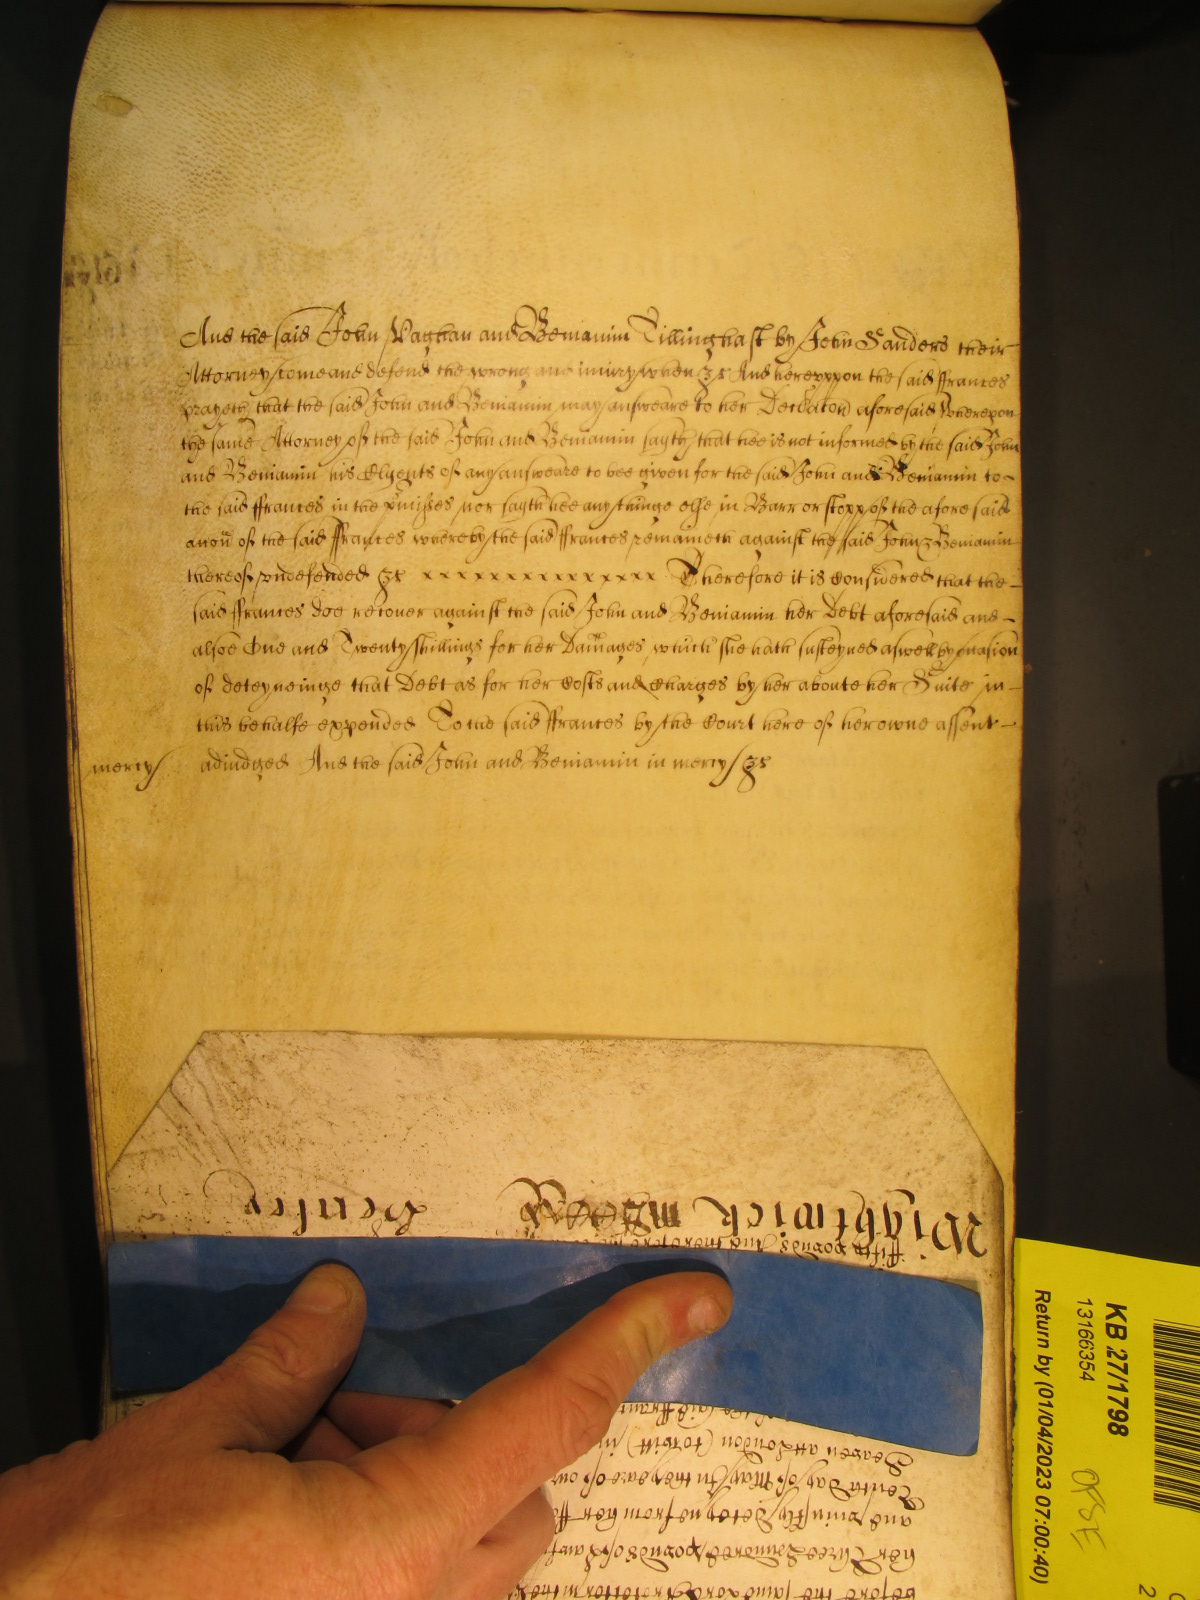 And the said John Vaghan and Beniamin Tillinghast by John Sanders their
Attorney come and defend the wrong and iniury when &c And herevppon the said ffrances
prayeth that the said John and Beniamin may answeare to her Declaracon aforesaid Wherevpon
the same Attorney of the said John and Beniamin sayth that hee is not informed by the said John
and Beniamin his Clyents of any answeare to bee given for the said John and Beniamin to
the said ffrances in the p'misses nor sayth hee any thinge else in Barr or stopp of the aforesaid
accon of the said ffrances whereby the said ffrances remaineth against the said John & Beniamin
thereof vndefended &c x x x x x x x x x x x x x x x Therefore it is Considered that the
said ffrances doe recouer against the said John and Beniamin her Debt aforesaid and
alsoe One and Twenty shillings for her Damages which she hath susteyned aswell by occasion
of deteyneinge that Debt as for her Costs and Charges by her aboute her Suite in
this behalfe expended To the said ffrances by the Court here of her owne assent
mercy adiudged And the said John and Beniamin in mercy &c
Wightwick
ffifty pounds And therefore
Seaven att London (to witt) in
Tenth day of May In the yeare of our
and vniustly deteyne from her
her Three hundred pounds of lawfull
before the
KB 27/1798
13166354
Return by (01/04/2023 07:00:40)